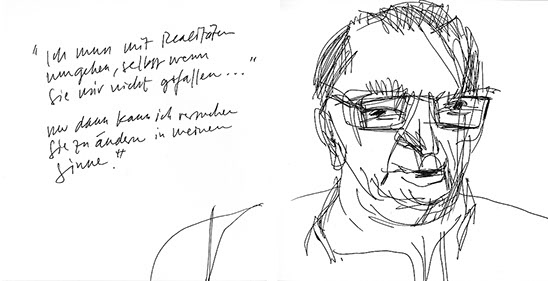 "Ich muss mit Realitäten
umgehen, selbst wenn
Sie mir nicht gefallen..."
nur dann kann ich versuchen
Sie zu ändern in meinem
Sinne."